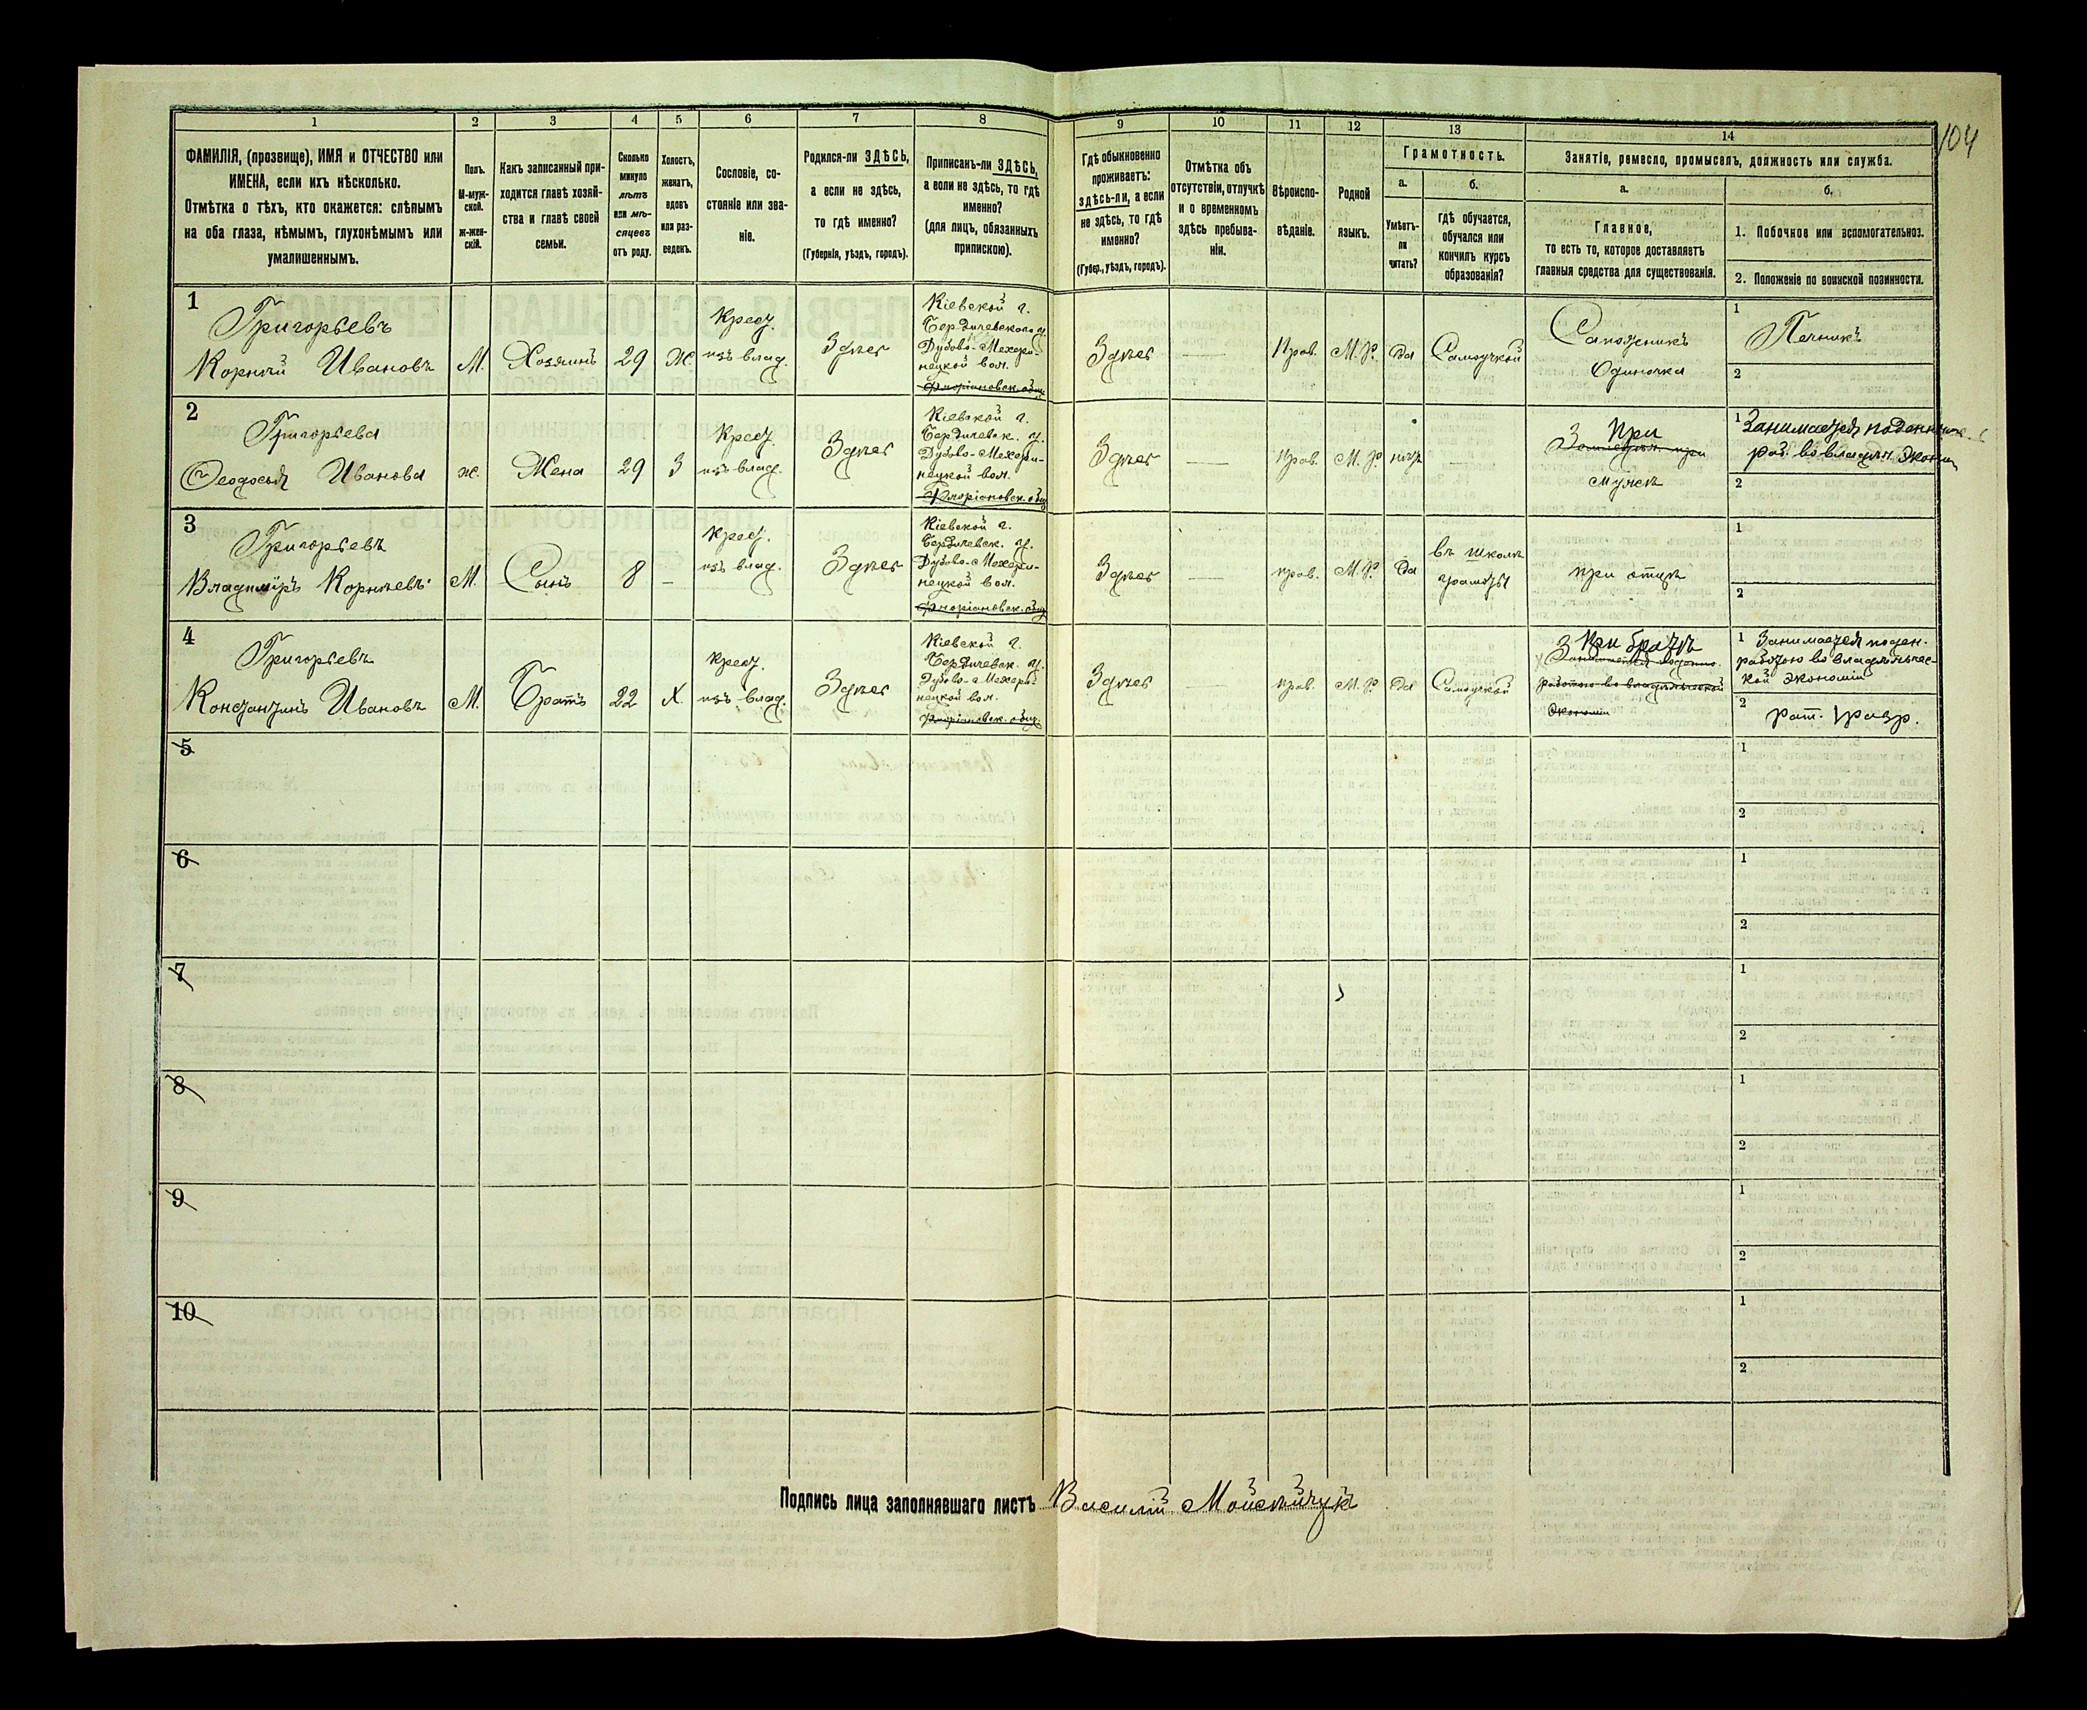 104
1
2
3
4
5
6
7
8
9
10
11
12
13
14
ФАМИЛІЯ, (прозвище), ИМЯ и ОТЧЕСТВО или
ИМЕНА, если ихъ нѣсколько.
Отмѣтка о тѣхъ, кто окажется: слѣпымъ
на оба глаза, нѣмымъ, глухонѣмымъ или
умалишеннымъ.
Полъ.
М-муж-
ской.
ж-жен-
скій.
Какъ записанный при-
ходится главѣ хозяй-
ства и главѣ своей
семьи.
Сколько
минуло
лѣтъ
или мѣ-
сяцевъ
отъ роду.
Холостъ,
женатъ,
вдовъ
или раз-
веденъ.
Сословіе, со-
стояніе или зва-
ніе.
Родился-ли ЗДѢСЬ,
а если не здѣсь,
то гдѣ именно?
(Губернія, уѣздъ, городъ).
Приписанъ-ли ЗДѢСЬ,
а если не здѣсь, то гдѣ
именно?
(для лицъ, обязанныхъ
припискою).
Гдѣ обыкновенно
проживаетъ:
здѣсь-ли, а если
не здѣсь, то гдѣ
именно?
(Губер., уѣздъ, городъ).
Отмѣтка объ
отсутствіи, отлучкѣ
и о временномъ
здѣсь пребыва-
ніи.
Вѣроиспо-
вѣданіе.
Родной
языкъ.
Грамотность.
а.
б.
Умѣетъ-
ли
читать?
гдѣ обучается,
обучался или
кончилъ курсъ
образованія?
Занятіе, ремесло, промыселъ, должность или служба.
а.
б.
Главное,
то есть то, которое доставляетъ
главныя средства для существованія.
1. Побочное или вспомогательноз.
2. Положеніе по воинской повинности.
1
Григорьевъ
Корній Ивановъ
М.
Хозяинъ
29
Ж.
Крест.
изъ влад.
Здѣсь
Кіевской г.
Бердичевскаго у.
Дубово-Махари-
нецкой вол.
Флоріановск. общ.
Здѣсь
Прав.
М.Р.
Да
Самоучкой
Сапожникъ
Одиночка
1
Печникъ
2
2
Григорьева
Ѳеодосія Иванова
ж.
Жена
29
З
Крест.
изъ влад.
Здѣсь
Кіевской г.
Бердичевск. у.
Дубово-Махари-
нецкой вол.
Флоріановск. общ.
Здѣсь
Прав.
М.Р.
нѣтъ
При
мужѣ
1 Занимается поденною
раб. во владѣл. экон.
2
3
Григорьевъ
Владиміръ Корніевъ
М.
Сынъ
8
Крест.
изъ влад.
Здѣсь
Кіевской г.
Бердичевск. у.
Дубово-Махари-
нецкой вол.
Флоріановск. общ.
Здѣсь
прав.
М.Р.
Да
въ школѣ
грамоты
при отцѣ
1
2
4
Григорьевъ
Константинъ Ивановъ
М.
Братъ
22
Х
Крест.
изъ влад.
Здѣсь
Кіевской г.
Бердичевск. у.
Дубово-Махари-
нецкой вол.
Флоріановск. общ.
Здѣсь
прав.
М.Р.
Да
Самоучкой
При братѣ
Занимается поденно
работою во владѣльческой
экономіи
1 Занимается поден.
работою во владѣльчес-
кой экономіи
2
рат. 1 разр.
5
1
2
6
1
2
7
1
2
8
1
2
9
1
2
10
1
2
Подпись лица заполнявшаго листъ Василій Мойсейчукъ